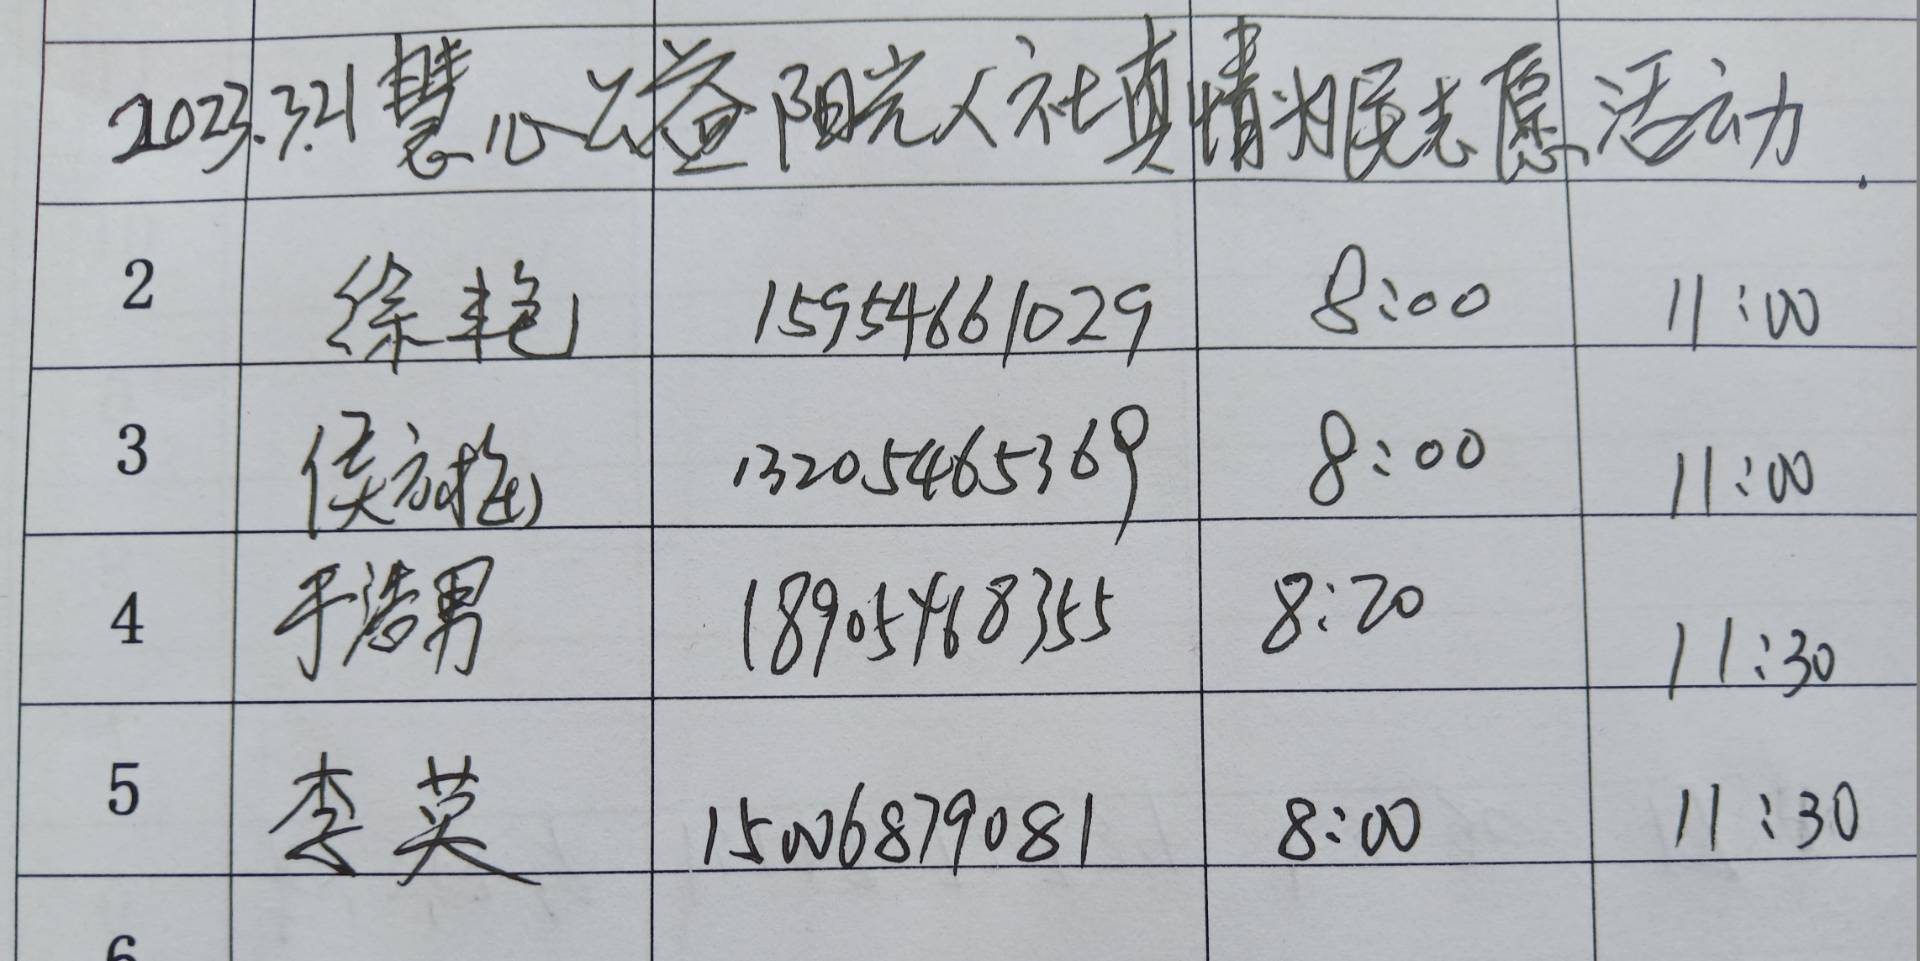 2023.3.21慧心公益阳光人社真情为民志愿活动
2 徐艳 15954661029 8:00 11:00
3 侯方 13205465369 8:00 11:00
4 于浩男 18905468355 8:20 11:30
5 李英 15006879081 8:00 11:30
6